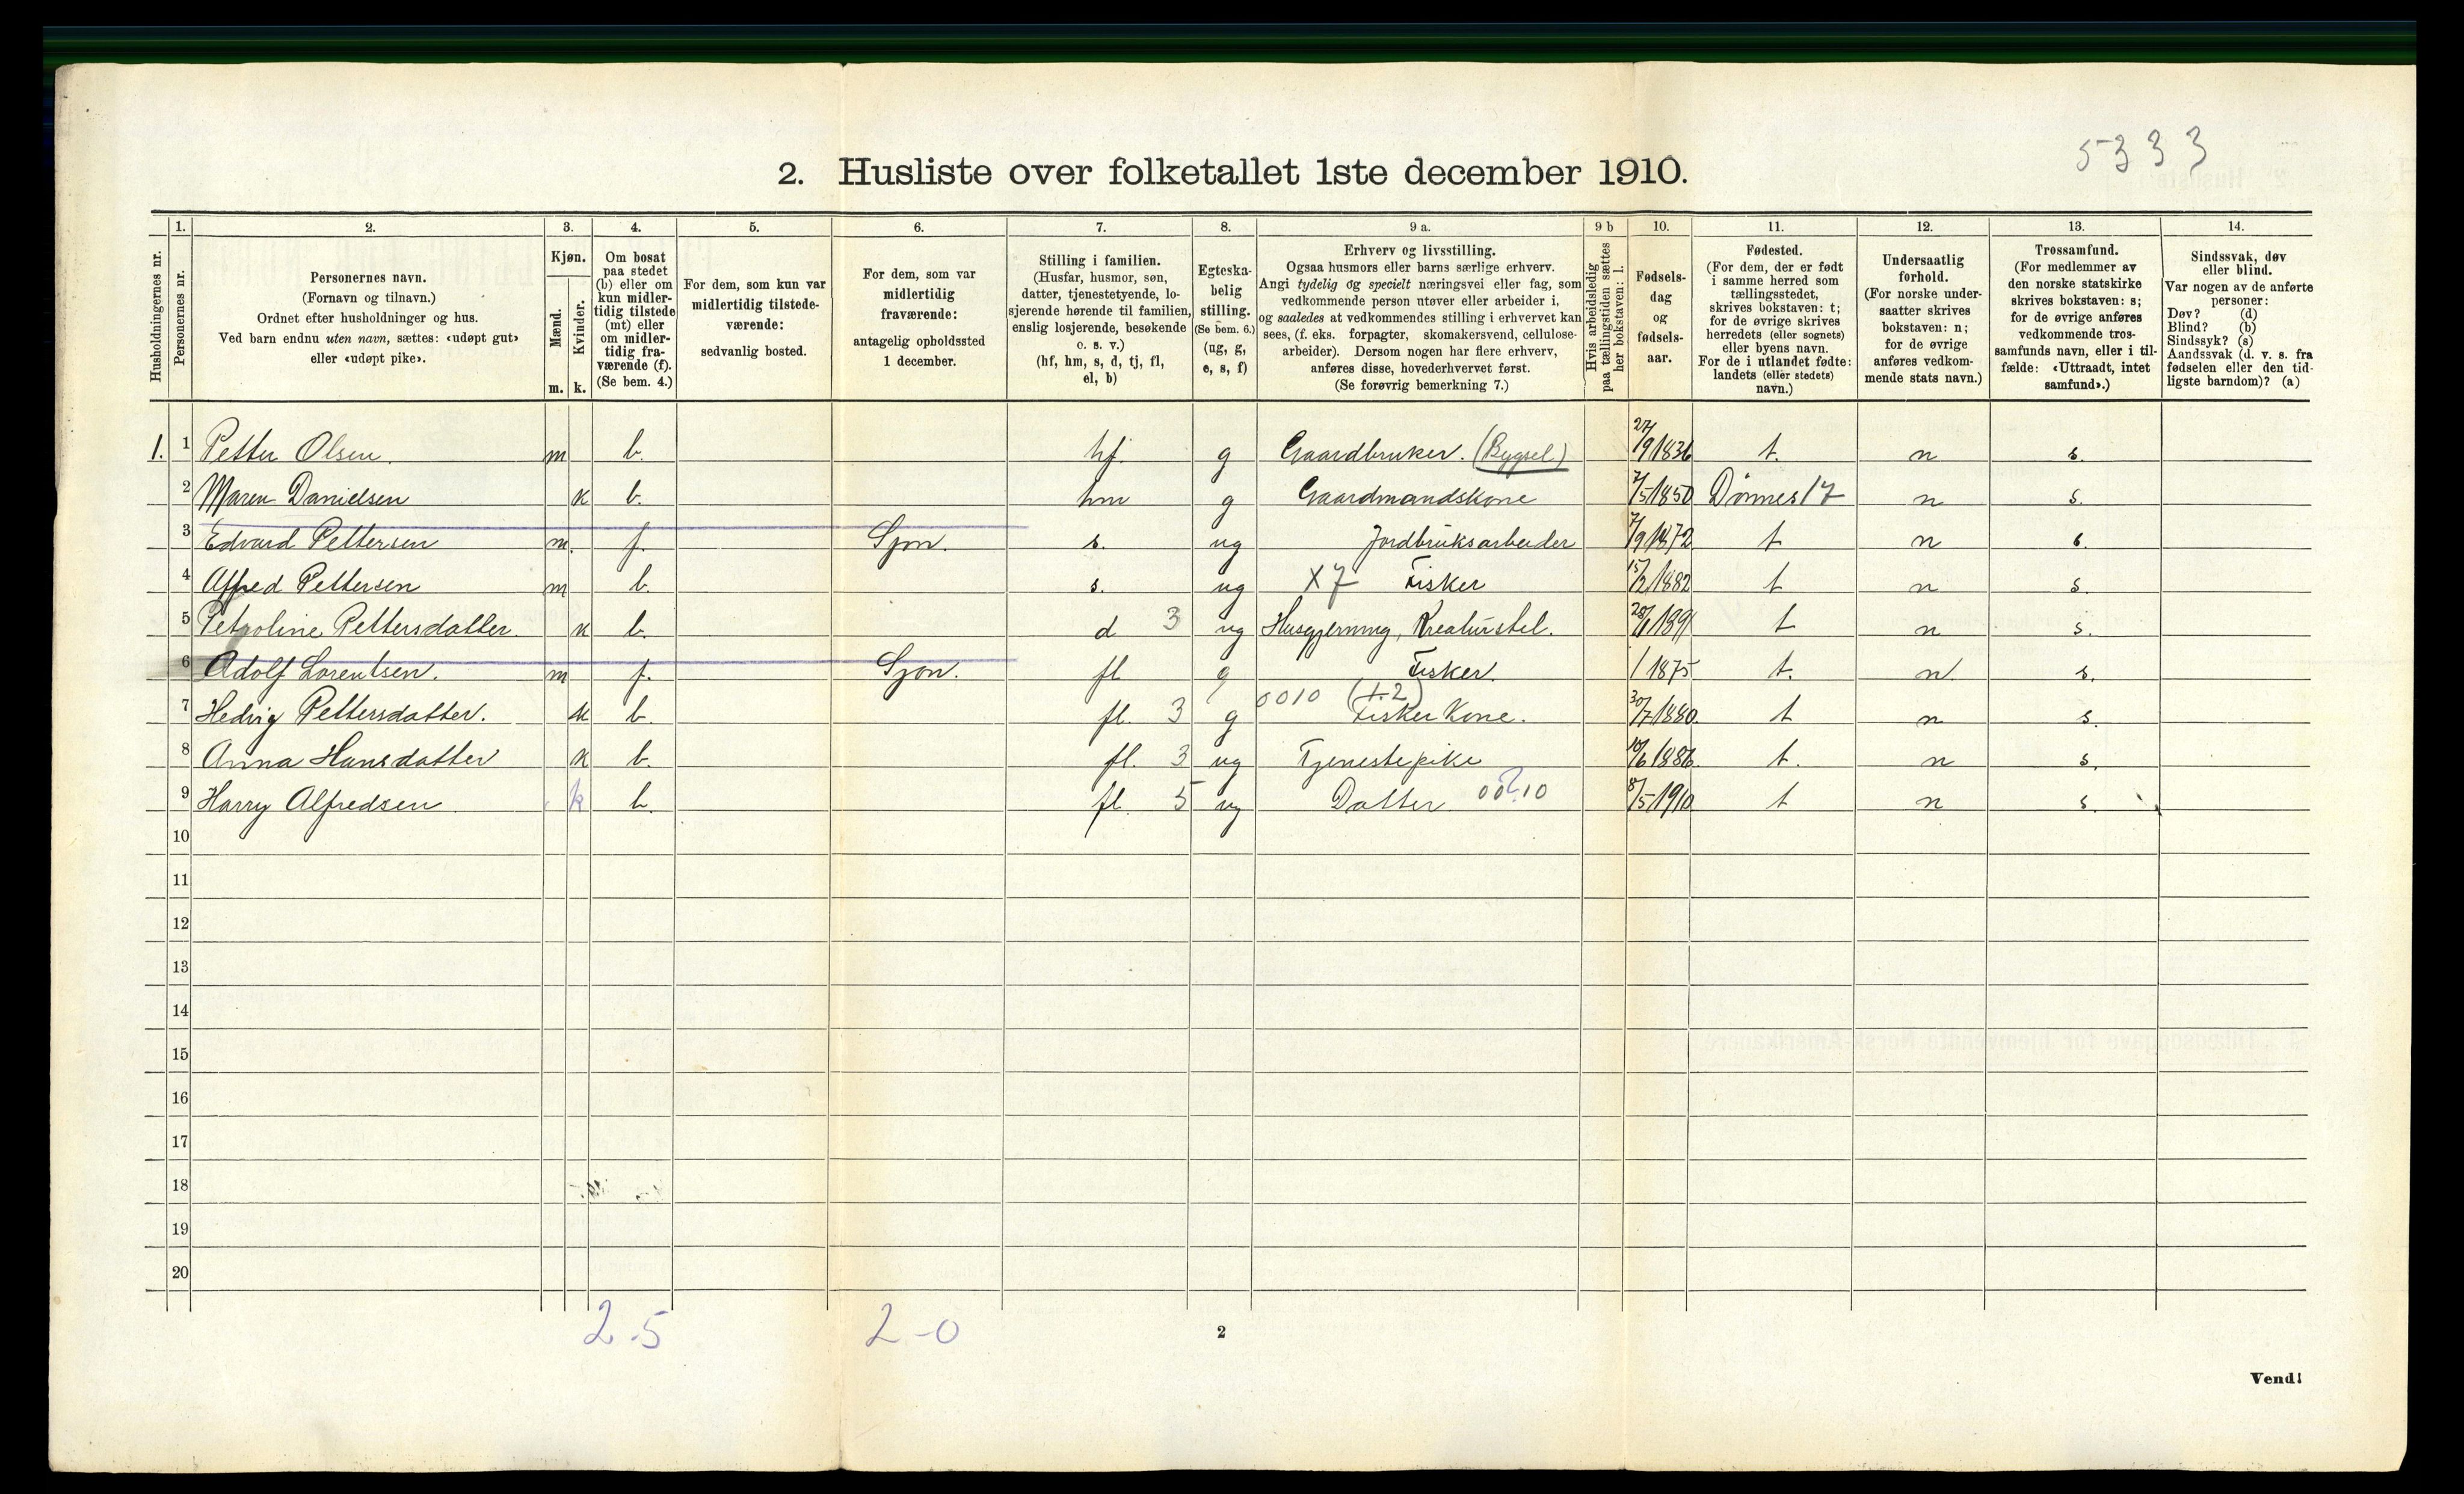 5333
2. Husliste over folketallet 1ste december 1910.
1. 2. 3. 4. 5. 6. 7. 8. 9 a. 9 b 10. 11. 12. 13. 14.
Husholdningernes nr.
Personernes nr.
Personernes navn.
(Fornavn og tilnavn.)
Ordnet efter husholdninger og hus.
Ved barn endnu uten navn, sættes: «udøpt gut»
eller «udøpt pike».
Kjøn.
Mænd.
Kvinder.
m. k.
Om bosat
paa stedet
(b) eller om
kun midler-
tidig tilstede
(mt) eller
om midler-
tidig fra-
værende (f).
(Se bem. 4.)
For dem, som kun var
midlertidig tilstede-
værende:
sedvanlig bosted.
For dem, som var
midlertidig
fraværende:
antagelig opholdssted
1 december.
Stilling i familien.
(Husfar, husmor, søn,
datter, tjenestetyende, lo-
sjerende hørende til familien,
enslig losjerende, besøkende
o. s. v.)
(hf, hm, s, d, tj, fl,
el, b)
Egteska-
belig
stilling.
(Se bem. 6.)
(ug, g,
e, s, f)
Erhverv og livsstilling.
Ogsaa husmors eller barns særlige erhverv.
Angi tydelig og specielt næringsvei eller fag, som
vedkommende person utøver eller arbeider i,
og saaledes at vedkommendes stilling i erhvervet kan
sees, (f. eks. forpagter, skomakersvend, cellulose-
arbeider). Dersom nogen har flere erhverv,
anføres disse, hovederhvervet først.
(Se forøvrig bemerkning 7.)
Hvis arbeidsledig
paa tællingstiden sættes
her bokstaven: l.
Fødsels-
dag
og
fødsels-
aar.
Fødested.
(For dem, der er født
i samme herred som
tællingsstedet,
skrives bokstaven: t;
for de øvrige skrives
herredets (eller sognets)
eller byens navn.
For de i utlandet fødte:
landets (eller stedets)
navn.)
Undersaatlig
forhold.
(For norske under-
saatter skrives
bokstaven: n;
for de øvrige
anføres vedkom-
mende stats navn.)
Trossamfund.
(For medlemmer av
den norske statskirke
skrives bokstaven: s;
for de øvrige anføres
vedkommende tros-
samfunds navn, eller i til-
fælde: «Uttraadt, intet
samfund».)
Sindssvak, døv
eller blind.
Var nogen av de anførte
personer:
Døv? (d)
Blind? (b)
Sindssyk? (s)
Aandssvak (d. v. s. fra
fødselen eller den tid-
ligste barndom)? (a)
1. 1 Petter Olsen. m b. hf. g Gaardbruker. (Bygsel) 27/9 1836 t. n s.
2 Maren Danielsen k b. hm g Gaardmandskone 7/5 1850 Dønnes 17 n s.
3 Edvard Pettersen m. f. Sjon. s. ug Jordbruksarbeider 7/9 1872 t n s.
4 Alfred Pettersen m b. s. ug X7 Fisker 15/2 1882 t n s.
5 Petroline Pettersdatter. k b. d 3 ug Husgjerning, Kreaturstel. t n s.
6 Adolf Lorentsen. m f. Sjon. fl g Fisker. / 1875 t. n s.
7 Hedvig Pettersdatter. k b. fl. 3 g 0010 (1.2) Fisker Kone. 30/7 1880. t n s.
8 Anna Hansdatter k b. fl. 3 ug Tjenestepike 10/6 1886. t. n s.
9 Harry Alfredsen k b. fl. 5 ug Datter 8/5 1910 t n s.
10
11
12
13
14
15
16
17
18
19
20
2-5 2-0
2
Vend!